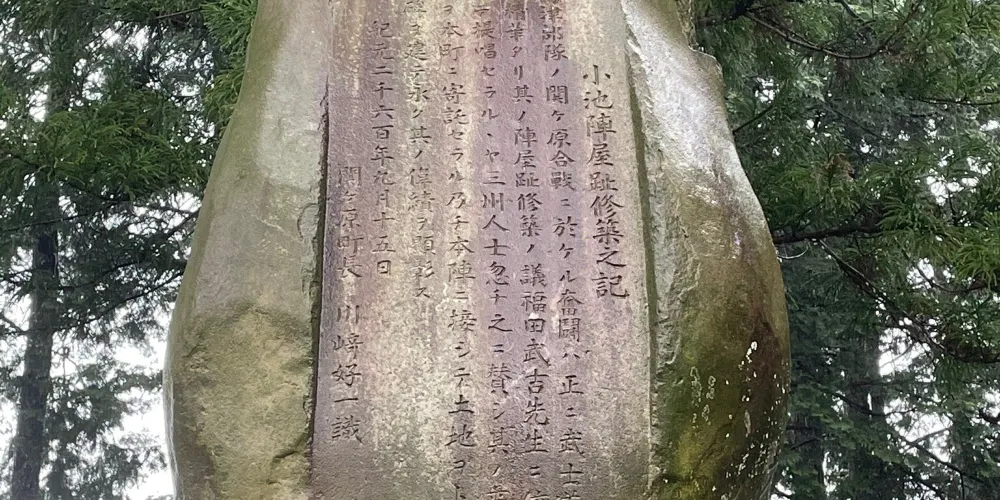 小池陣屋趾修築之記
部隊ノ関ヶ原合戰ニ於ケル奮鬪ハ正ニ武士
華タリ其ノ陣屋趾修築ノ議福田武吉先生ニ
提唱セラル、ヤ三川人士忽チ之ニ賛シ其ノ
本町ニ寄託セラル乃チ本陣ニ接シテ土地コト
ヲ建テ永ク其ノ偉績ヲ顕彰ス
紀元二千六百年九月十五日
関ヶ原町長 川﨑好一識